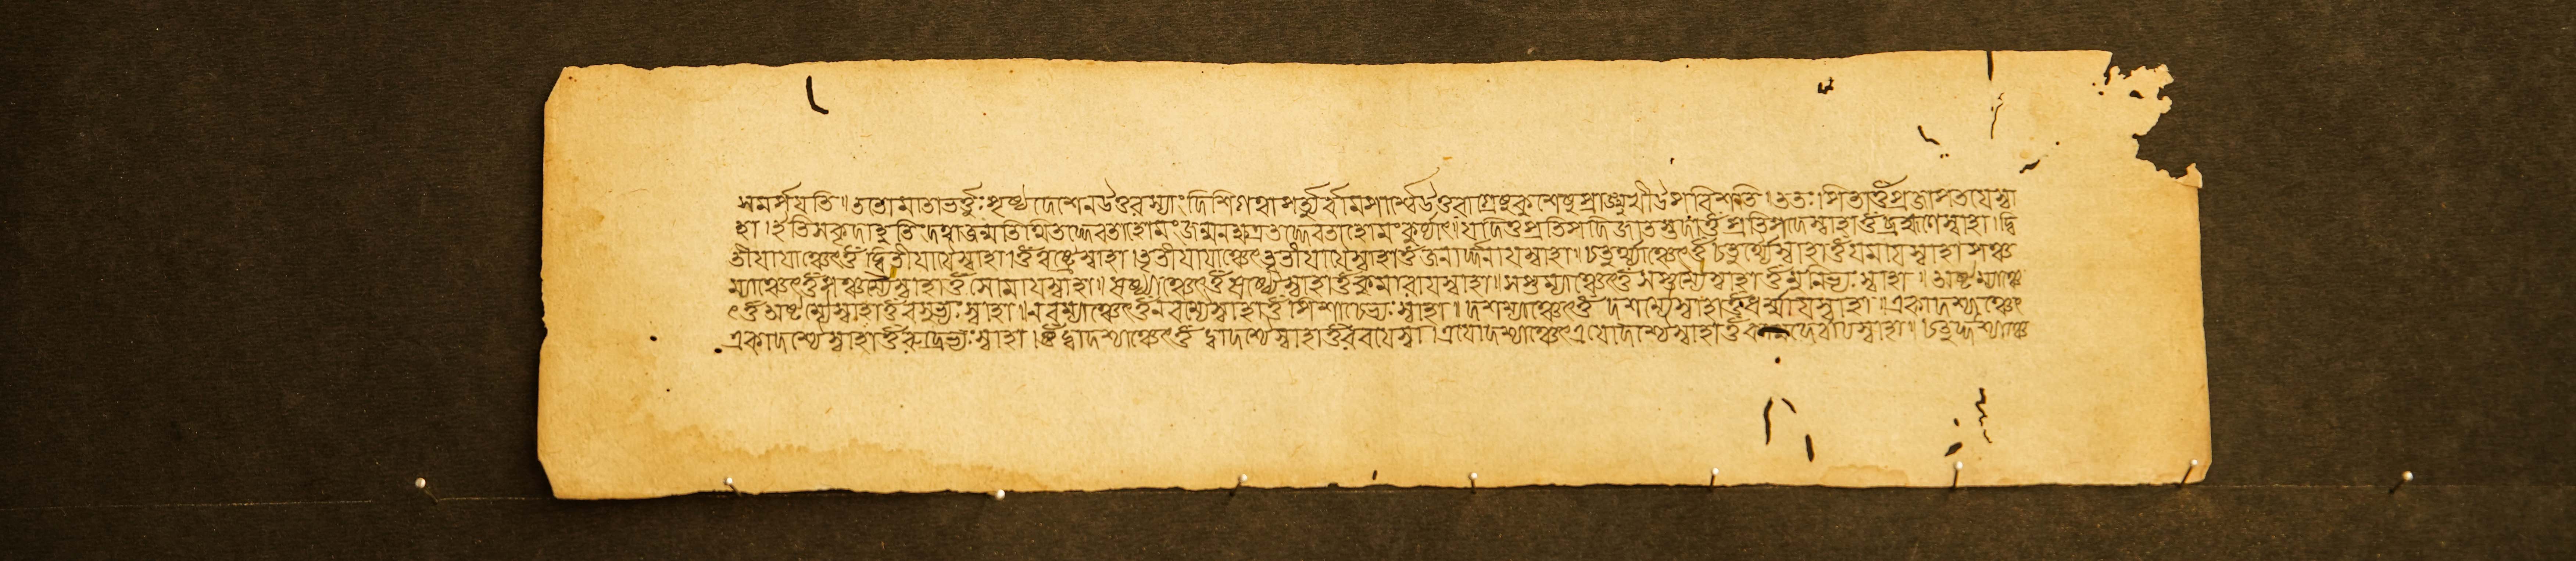 সমর্পযতি॥ততোমাতাভর্ত্তুঃপৃষ্ঠদেশেনউত্তরস্যাংদিশিগত্বাপত্যুর্ব্বামপার্শ্বেউত্তরাগ্রেষুকুশেষুপ্রাঙ্মুখীউপবিশতি।ততঃপিতাওঁপ্রজাপতযেস্বা
হা।ইতিসকৃদাহুতিংদত্বাজন্মতিথিতদ্দেবতাহোমংজন্মনক্ষত্রতদ্দেবতাহোমংকুর্য্যাৎ।যদিতুপ্রতিপদিজাতস্তদাওঁপ্রতিপদেস্বাহাওঁব্রহ্মণেস্বাহা।দ্বি
তীযাযাঞ্চেৎওঁদ্বিতীযাযৈস্বাহা।ওঁত্বষ্ট্রেস্বাহা।তৃতীযাযাঞ্চেৎতৃতীযাযৈস্বাহাওঁজনার্দ্দনাযস্বাহা॥চতুর্থ্যাঞ্চেৎওঁচতুর্থ্যৈস্বাহাওঁযমাযস্বাহা।পঞ্চ
ম্যাঞ্চেৎওঁপঞ্চম্যৈস্বাহাওঁসোমাযস্বাহা॥ষষ্ঠ্যাঞ্চেৎওঁষষ্ঠ্যৈস্বাহাওঁকুমারাযস্বাহা॥সপ্তম্যাঞ্চেৎওঁসপ্তম্যৈস্বাহাওঁমুনিভ্যঃস্বাহা॥অষ্টম্যাঞ্চে
ৎওঁঅষ্টম্যৈস্বাহাওঁবসুভ্যঃস্বাহা॥নবম্যাঞ্চেৎওঁনবম্যৈস্বাহাওঁপিশাচেভ্যঃস্বাহা॥দশম্যাঞ্চেৎওঁদশম্যৈস্বাহাওঁধর্ম্মাযস্বাহা॥একাদশ্যাঞ্চেৎ
একাদশ্যৈস্বাহাওঁরুদ্রেভ্যঃস্বাহা।দ্বাদশ্যাঞ্চেৎওঁদ্বাদশ্যৈস্বাহাওঁরবযেস্বা।ত্রযোদশ্যাঞ্চেৎত্রযোদশ্যৈস্বাহাওঁদেবাযস্বাহা॥চতুর্দ্দশ্যাঞ্চে